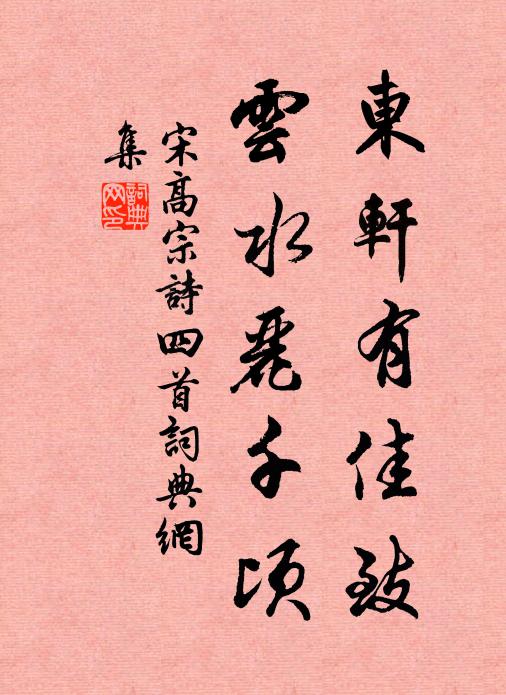 東軒有佳致
雲水麗千頃
宋高宗詩四首詞典網
集
詞典
网印